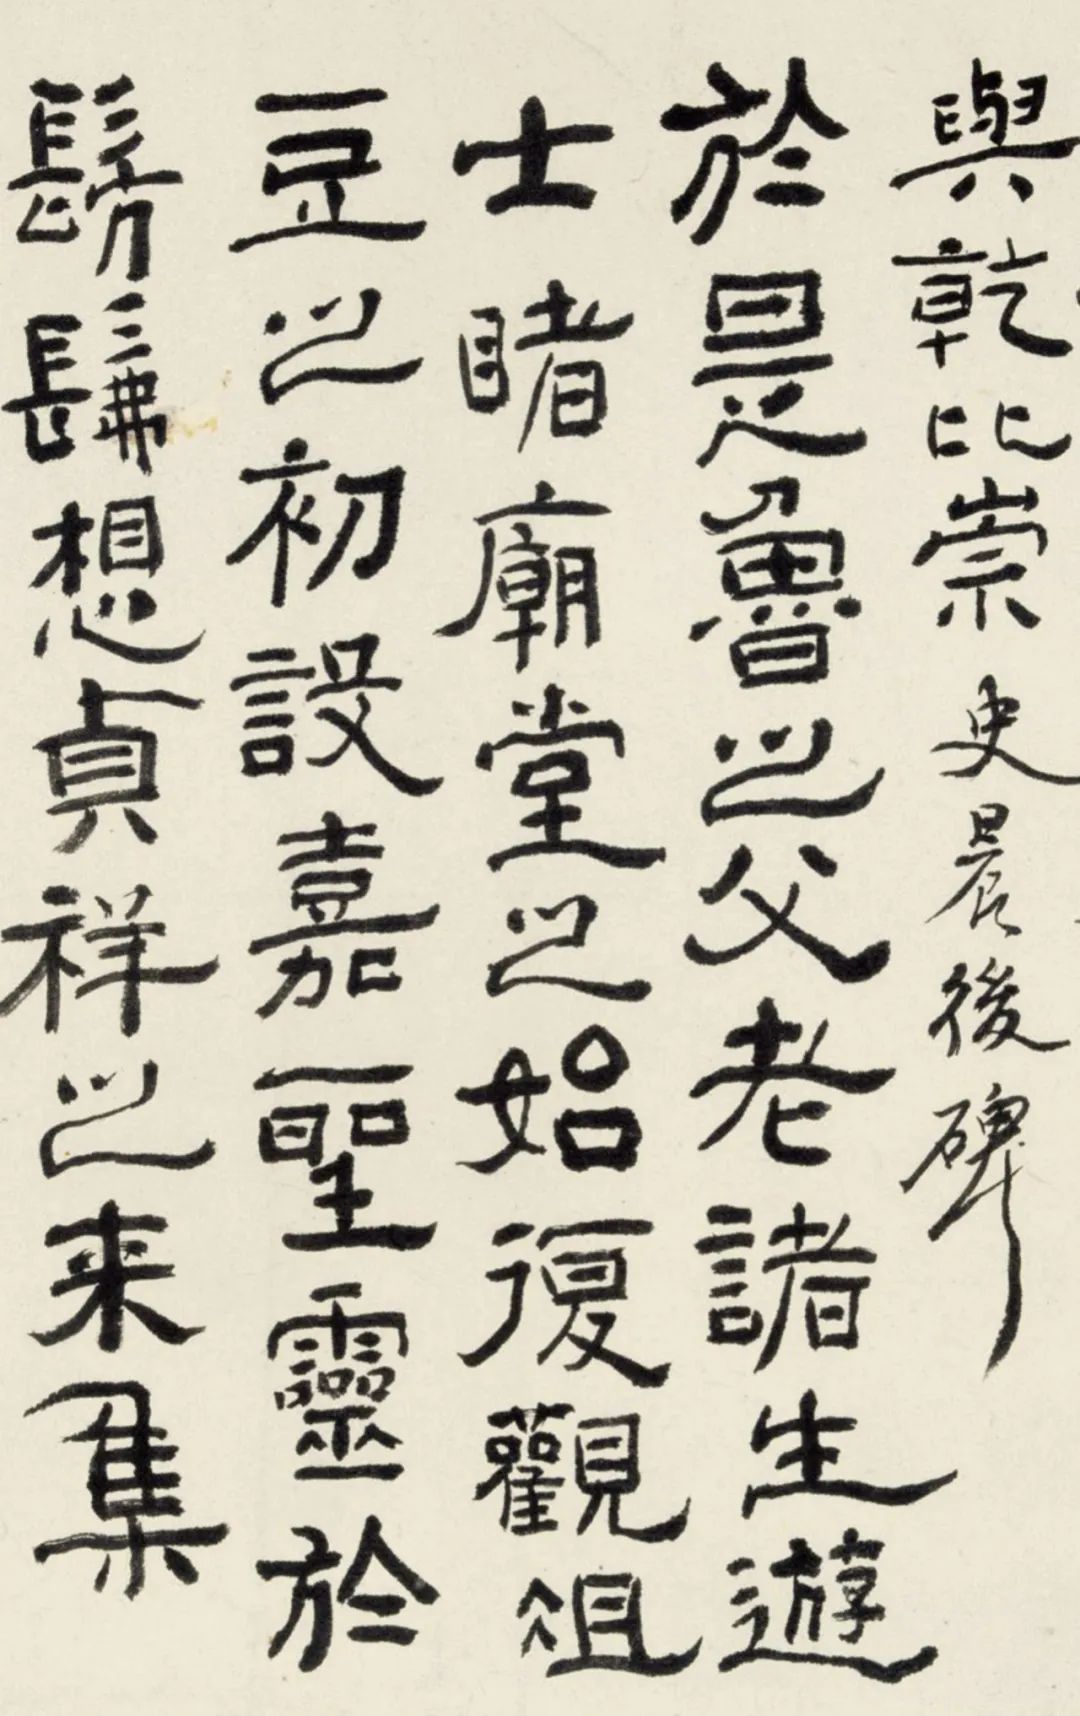 與乾比崇 史晨後碑
於是魯之父老諸生遊
士睹廟堂之始復觀俎
豆之初設嘉聖靈於
髣髴想貞祥之来集